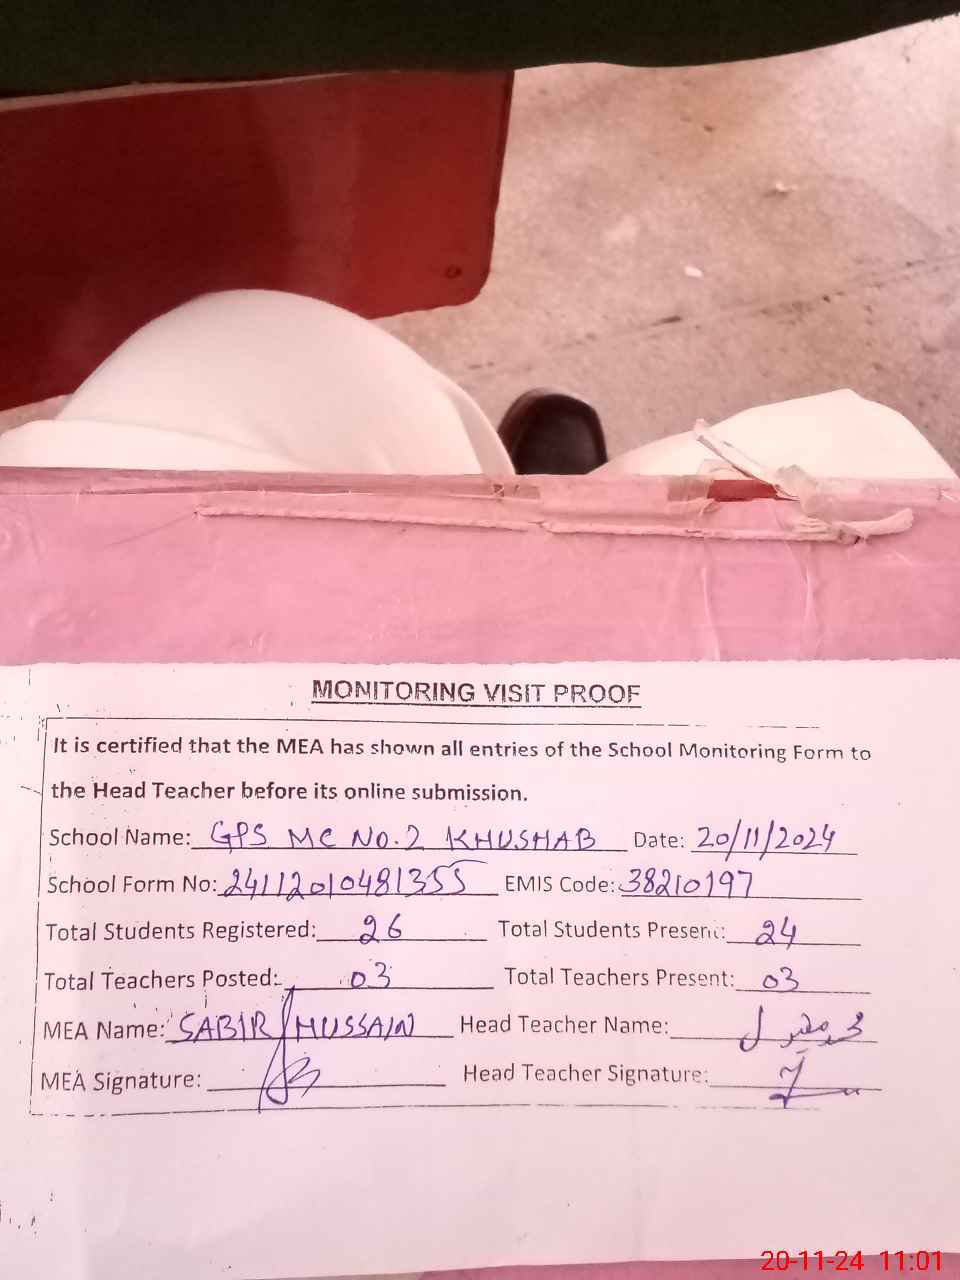 MONITORING VISIT PROOF
It is certified that the MEA has shown all entries of the School Monitoring Form to
the Head Teacher before its online submission.
School Name: GPS MC NO.2 KHUSHAB Date: 20/11/2024
School Form No: 24112010481355 EMIS Code: 38210197
Total Students Registered: 26 Total Students Present: 24
Total Teachers Posted: 03 Total Teachers Present: 03
MEA Name: SABIR HUSSAIN Head Teacher Name:
MEA Signature: Head Teacher Signature:
20-11-24 11:01